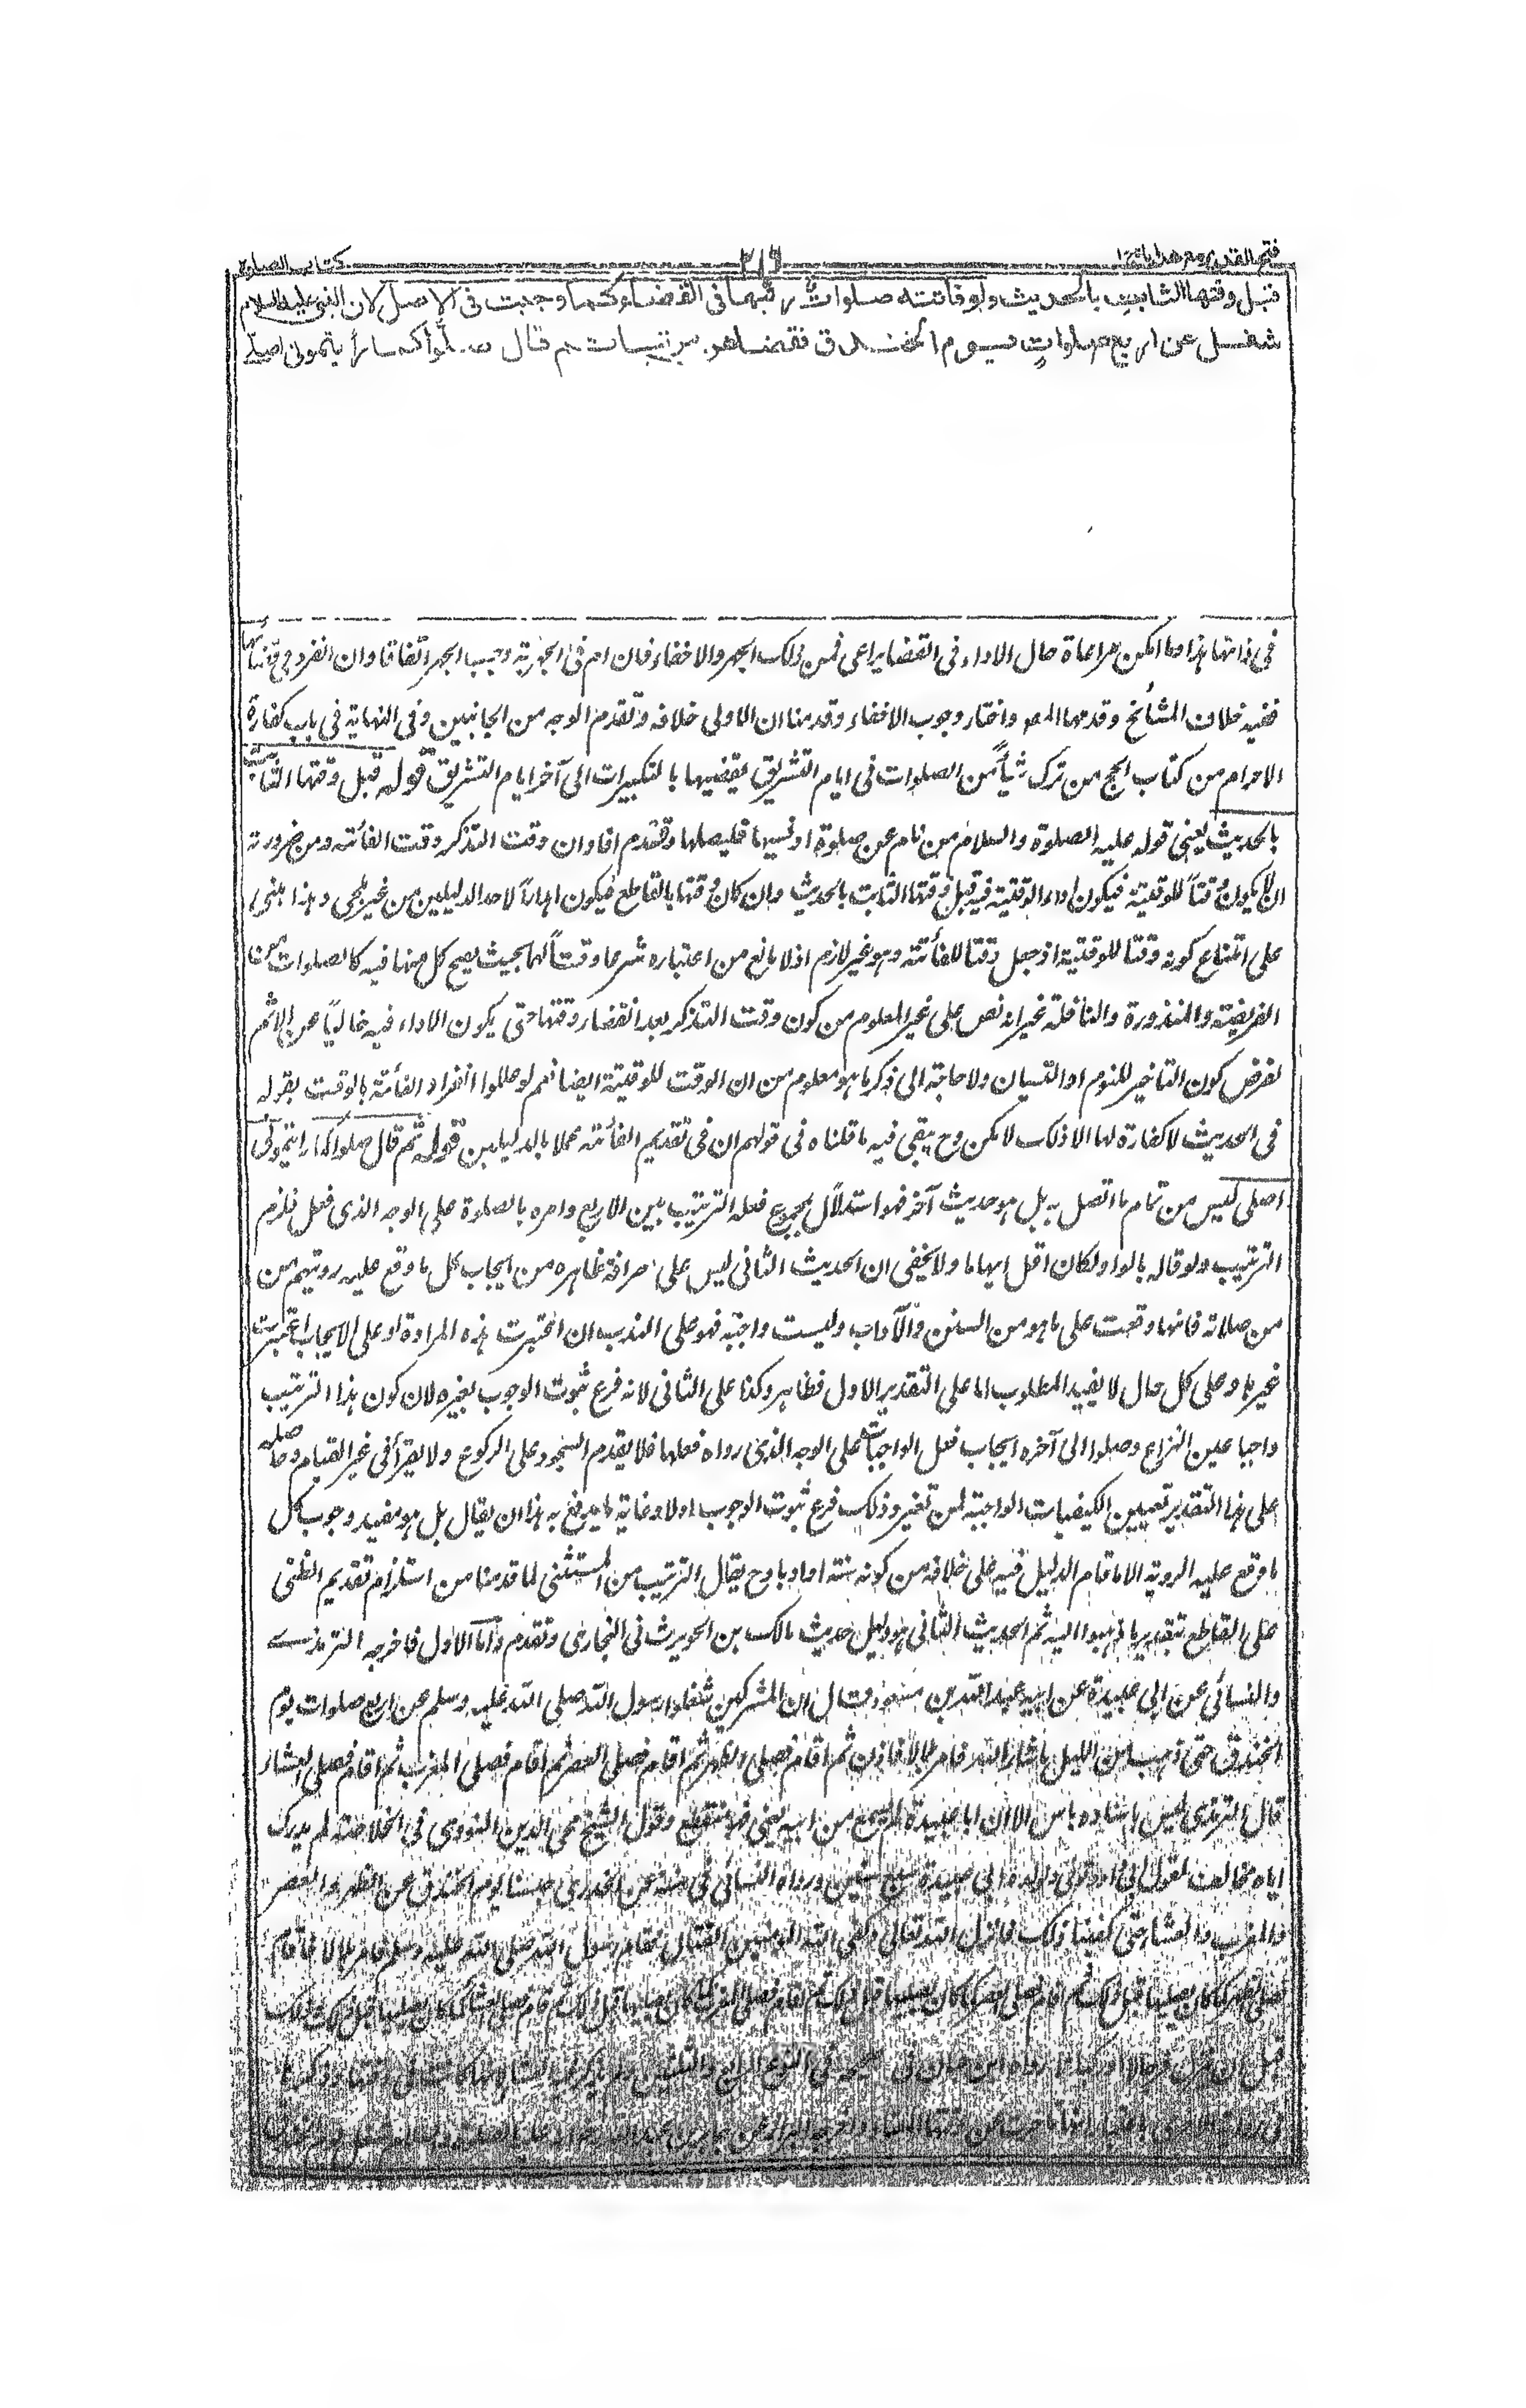 فتح القدير مع هداية ج ا
٣١٦
كتاب الصلوة
قبل وقتها الثابت بالحديث ولو فاتته صلوات رتبها فى القضاء كما وجبت فى الاصل لان النبى عليه السلام
شغل عن اربع صلوات يوم الخندق فقضاهن مرتبات ثم قال صلوا كما رأيتمونى اصلى
فى ذاتها هذا وما امكن مراعاة حال الاداء فى القضا يراعى فمن ذلك الجهر والاخفاء فان ام فى الجهرية وجب الجهر اتفاقا وان انفرد
ففيه خلاف المشائخ وقدمها المص واختار وجوب الاخفاء وقدمنا ان الاولى خلافه وتقدم الوجه من الجانبين وفى النهاية فى باب كفارة
الاحرام من كتاب الحج من ترك شيأ من الصلوات فى ايام التشريق يقضيها بالتكبيرات الى آخر ايام التشريق قوله قبل وقتها الثابت
بالحديث يعنى قوله عليه الصلوة والسلام من نام عن صلوة او نسيها فليصلها وتقدم افاد ان وقت التذكر وقت الفائتة ومن ضرورته
ان لا يكون وقتا للوقتية فيكون اداء الوقتية فيه قبل وقتها الثابت بالحديث وان كان وقتها بالقاطع فيكون اهدارا لاحد الدليلين من غير ملجئ وهذا مبنى
على امتناع كونه وقتا للوقتية اذ جعل وقتا للفائتة وهو غير لازم اذ لا مانع من اعتباره شرعا وقتا لهما بحيث يصح كل منهما فيه كالصلوات
الفريضة والمنذورة والنافلة غير انه نص على غير المعلوم من كون وقت التذكر بعد انقضاء وقتها حتى يكون الاداء فيه خاليا عن الاثم
لفرض كون التاخير للنوم او النسيان ولا حاجة الى ذكر ما هو معلوم من ان الوقت للوقتية ايضا نعم لو عللوا انفراد الفائتة بالوقت بقوله
فى الحديث لا كفارة لها الا ذلك لامكن وح يبقى فيه ما قلناه فى قولهم ان فى تقديم الفائتة عملا بالدليلين قوله ثم قال صلوا كما رايتمونى
اصلى ليس من تمام ما اتصل به بل هو حديث آخر فهو استدلال بمجموع فعله الترتيب بين الاربع وامره بالصلوة على الوجه الذى فعل فلزم
الترتيب ولو قاله بالواو لكان اقل ايهاما ولا يخفى ان الحديث الثانى ليس على صرافة ظاهره من ايجاب كل ما وقع عليه رويتهم من
من صلاته فانها وقعت على ما هو من السنن والآداب وليست واجبة فهو على الندب ان اعتبرت هذه المرادة او على الايجاب ان اعتبرت
غيرها وعلى كل حال لا يفيد المطلوب اما على التقدير الاول فظاهر وكذا على الثانى لانه فرع ثبوت الوجوب بغيره لان كون هذا الترتيب
واجبا عين النزاع وصلوا الى آخره ايجاب فعل الواجبات على الوجه الذى رواه فعلها فلا يقدم السجود على الركوع ولا يقرأ فى غير القيام وحاصله
على هذا التقدير تعيين الكيفيات الواجبة لمن تغير وذلك فرع ثبوت الوجوب اولا وغاية ما يدفع به هذا ان يقال بل هو مفيد وجوب كل
ما وقع عليه الروية الا ما قام الدليل فيه على خلافه من كونه سنة او ادبا وح يقال الترتيب من المستثنى لما قدمنا من استلزام تقديم الظنى
على القاطع بتقدير ما ذهبوا اليه ثم الحديث الثانى هو دليل حديث مالك بن الحويرث فى البخارى وتقدم واما الاول فاخرجه الترمذى
والنسائى عن ابى عبيدة عن ابيه عبد الله بن مسعود قال ان المشركين شغلوا رسول الله صلى الله عليه وسلم عن اربع صلوات يوم
الخندق حتى ذهب من الليل ما شاء الله فامر بلالا فاذن ثم اقام فصلى الظهر ثم اقام فصلى العصر ثم اقام فصلى المغرب ثم اقام فصلى العشاء
قال الترمذى ليس باسناده باس الا ان ابا عبيدة لم يسمع من ابيه يعنى فهو منقطع وقول الشيخ محى الدين النووى فى الخلاصة لم يدرك
اياه مخالف لقول ابى داود توفى والده ابى عبيدة سبع سنين ورواه النسائى فى سننه عن الخدرى حبسنا يوم الخندق عن الظهر والعصر
والمغرب والعشاء حتى كفينا ذلك فانزل الله تعالى وكفى الله المومنين القتال فقام رسول الله صلى الله عليه وسلم فامر بلالا فاقام
فصلى الظهر كما كان يصليها قبل ذلك ثم اقام فصلى العصر كما كان يصليها قبل ذلك ثم اقام فصلى المغرب كما كان يصليها قبل ذلك ثم اقام فصلى العشاء كما كان يصليها قبل ذلك وذلك
قبل ان ينزل فرجالا او ركبانا رواه ابن حبان فى صحيحه فى النوع الرابع والثلثين